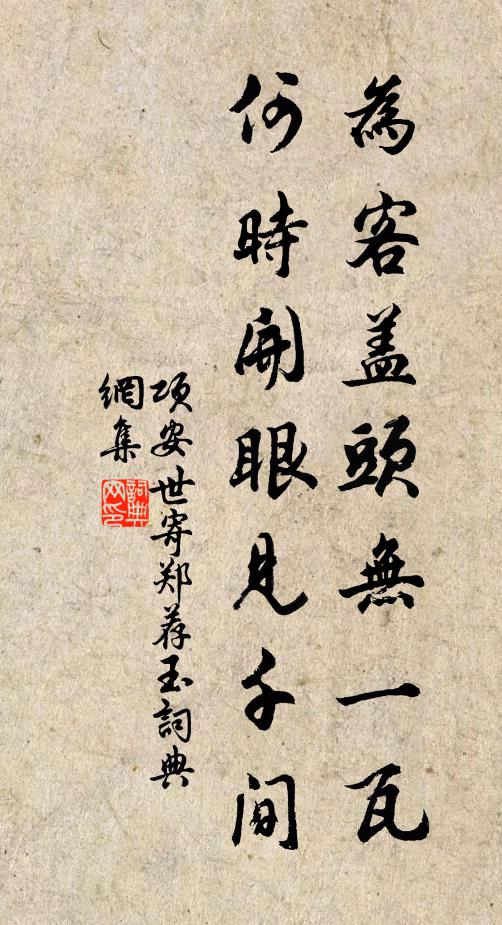 為客盖頭無一瓦
何時開眼見千間
项安世寄郑荐玉詞典
網集
詞典网印